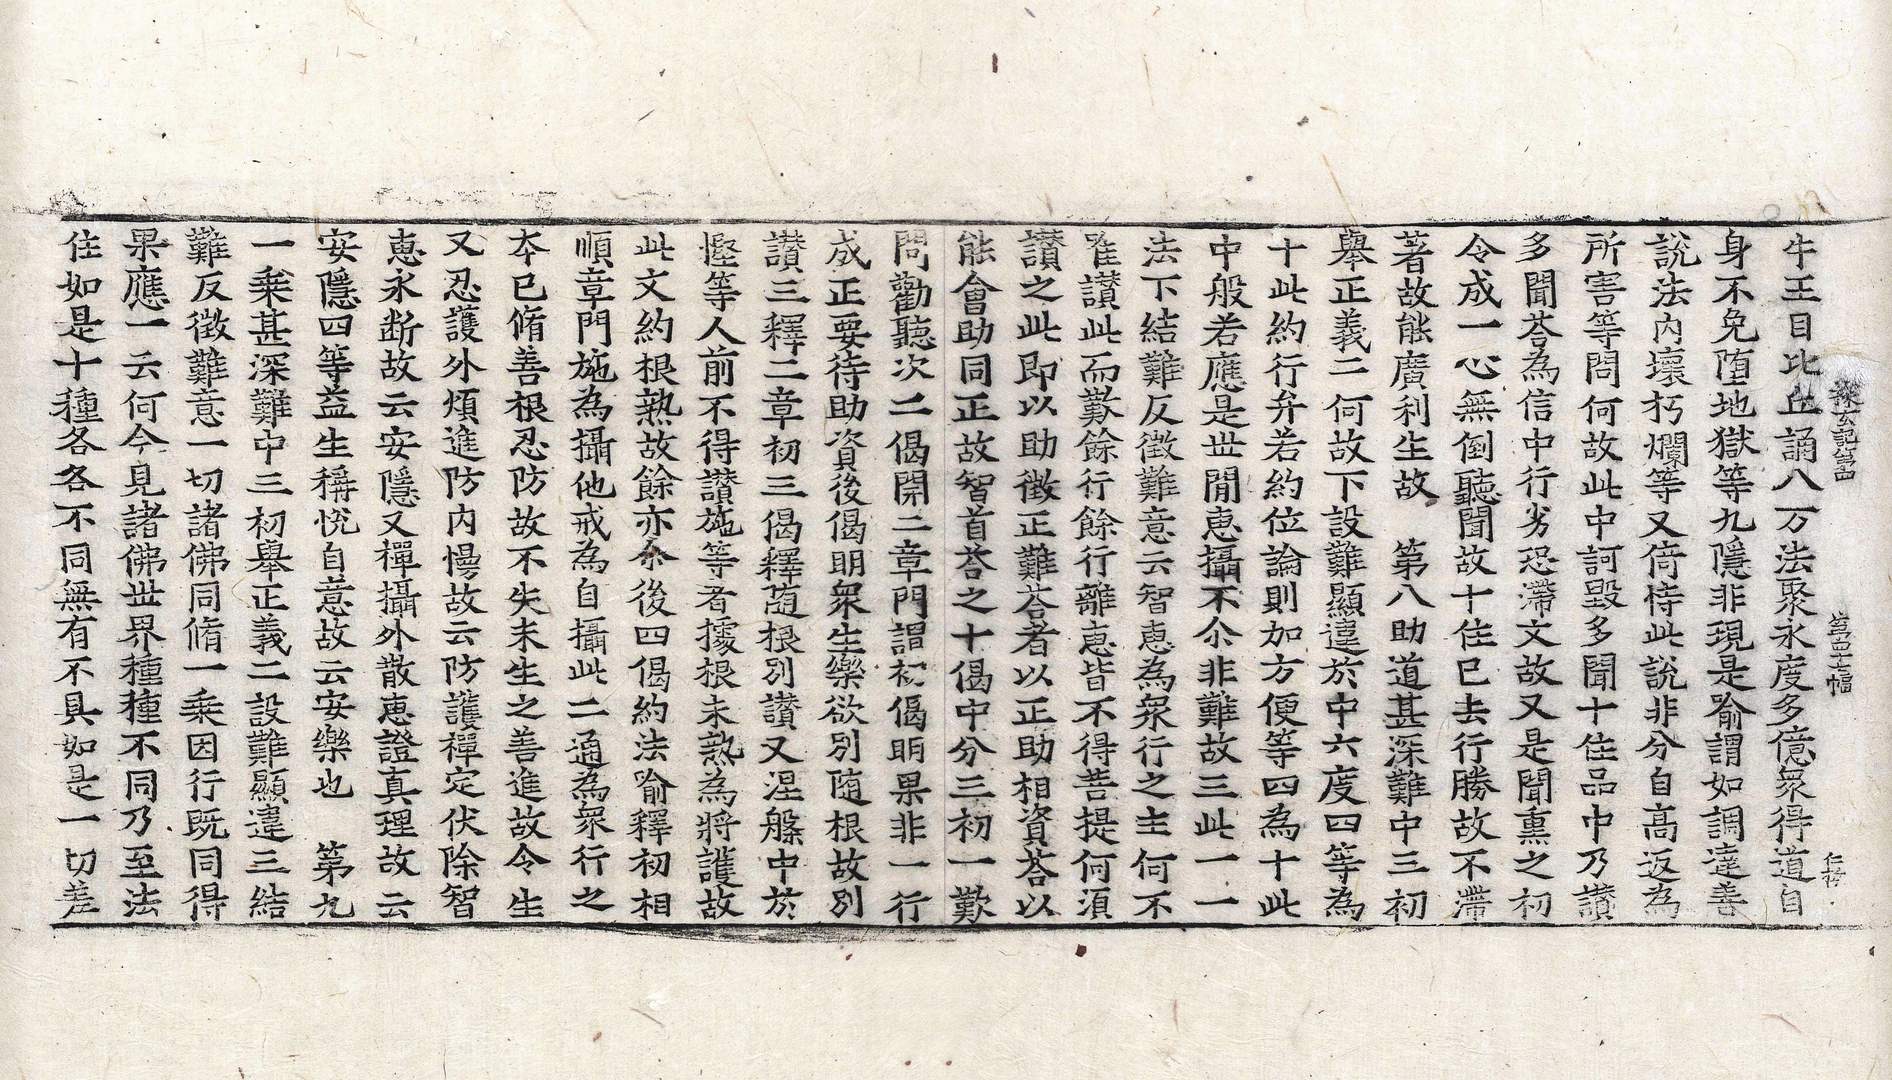 探玄記第四
第二十七幅
仁挌
牛王目比丘誦八万法聚永度多億衆得道自
身不免墮地獄等九隱非現是喻謂如調達善
說法內壞朽爛等又倚恃此說非分自高返為
所害等問何故此中訶毀多聞十住品中乃讚
多聞荅為信中行劣恐滯文故又是聞熏之初
令成一心無倒聽聞故十住已去行勝故不滯
著故能廣利生故　第八助道甚深難中三初
舉正義二何故下設難顯違於中六度四等為
十此約行弁若約位論則加方便等四為十此
中般若應是世閒惠攝不尒非難故三此一一
法下結難反徵難意云智惠為衆行之主何不
唯讚此而歎餘行餘行離惠皆不得菩提何湏
讚之此即以助徵正難荅者以正助相資荅以
能會助同正故智首荅之十偈中分三初一歎
問勸聽次二偈開二章門謂初偈明果非一行
成正要待助資後偈明衆生樂欲別隨根故別
讚三釋二章初三偈釋隨根別讚又涅槃中於
慳等人前不得讚施等者據根未熟為將護故
此文約根熟故餘亦尒後四偈約法喻釋初相
順章門施為攝他戒為自攝此二通為衆行之
本已脩善根忍防故不失未生之善進故令生
又忍護外煩進防內慢故云防護禪定伏除智
恵永断故云安隱又禪攝外散恵證真理故云
安隱四等益生稱悅自意故云安樂也　第九
一乘甚深難中三初舉正義二設難顯違三結
難反徵難意一切諸佛同脩一乘因行既同得
果應一云何今見諸佛世界種種不同乃至法
住如是十種各各不同無有不具如是一切差